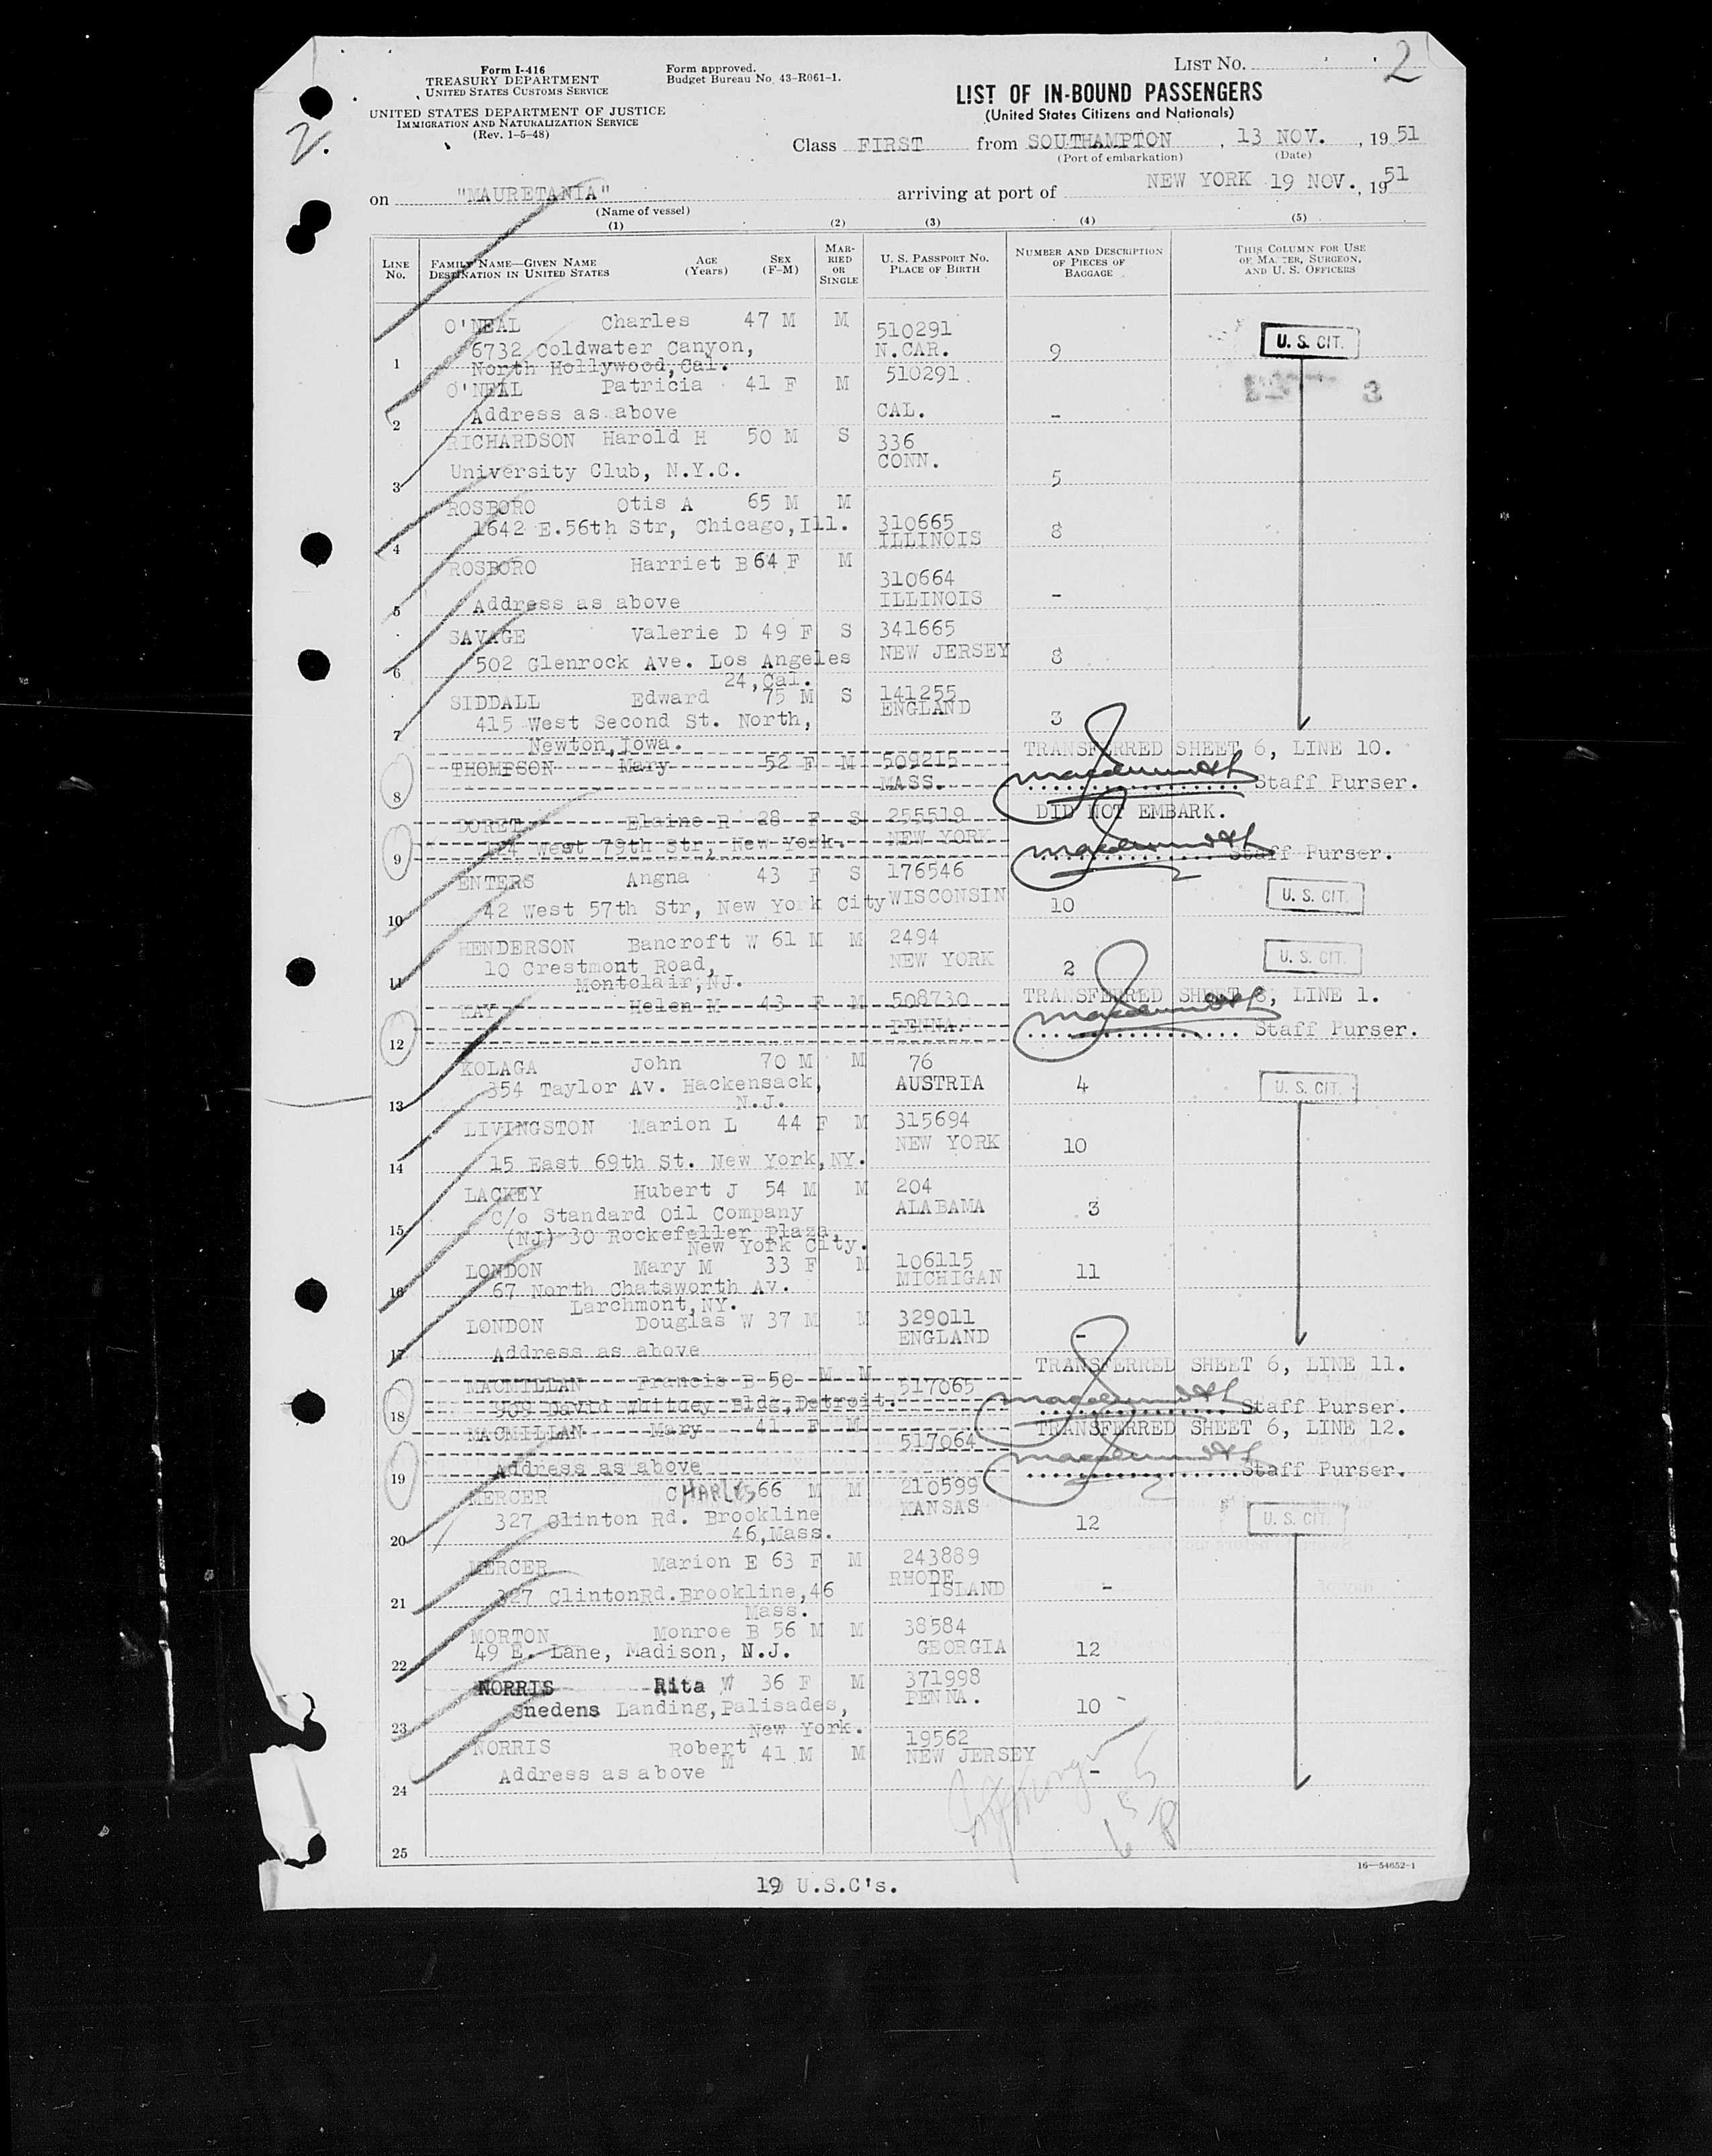 Form I-416
TREASURY DEPARTMENT
UNITED STATES CUSTOMS SERVICE
UNITED STATES DEPARTMENT OF JUSTICE
IMMIGRATION AND NATURALIZATION SERVICE
(Rev. 1-5-48)
Form approved.
Budget Bureau No. 43-R061-1.
LIST No. 2
2.
LIST OF IN-BOUND PASSENGERS
(United States Citizens and Nationals)
Class FIRST from SOUTHAMPTON, 13 NOV., 1951
(Port of embarkation) (Date)
on "MAURETANIA" arriving at port of NEW YORK 19 NOV., 1951
(Name of vessel)
(1) (2) (3) (4) (5)
LINE No. FAMILY NAME—GIVEN NAME DESTINATION IN UNITED STATES AGE (Years) SEX (F-M) MARRIED OR SINGLE U. S. PASSPORT No. PLACE OF BIRTH NUMBER AND DESCRIPTION OF PIECES OF BAGGAGE THIS COLUMN FOR USE OF MASTER, SURGEON, AND U. S. OFFICERS
O'NEAL Charles 47 M M 510291 U. S. CIT.
6732 Coldwater Canyon, N.CAR. 9
1 North Hollywood, Cal.
O'NEAL Patricia 41 F M 510291 3
2 Address as above CAL. -
RICHARDSON Harold H 50 M S 336
CONN.
3 University Club, N.Y.C. 5
ROSBORO Otis A 65 M M
4 1642 E.56th Str, Chicago, Ill. 310665 ILLINOIS 8
ROSBORO Harriet B 64 F M 310664
5 Address as above ILLINOIS -
SAVAGE Valerie D 49 F S 341665
6 502 Glenrock Ave. Los Angeles NEW JERSEY 8
24, Cal.
SIDDALL Edward 75 M S 141255
415 West Second St. North, ENGLAND 3
7 Newton, Iowa.
TRANSFERRED SHEET 6, LINE 10.
THOMPSON Mary 52 F M 509215
8 MASS. Staff Purser.
DID NOT EMBARK.
DORET Elaine R 28 F S 255519
9 West 79th Str, New York. NEW YORK Staff Purser.
ENTERS Angna 43 F S 176546
10 42 West 57th Str, New York City WISCONSIN 10 U. S. CIT.
HENDERSON Bancroft W 61 M M 2494
10 Crestmont Road, NEW YORK 2 U. S. CIT.
11 Montclair, NJ.
KAY Helen M 43 F M 508730 TRANSFERRED SHEET 6, LINE 1.
12 PENNA. Staff Purser.
KOLAGA John 70 M M 76
354 Taylor Av. Hackensack, AUSTRIA 4 U. S. CIT.
13 N.J.
LIVINGSTON Marion L 44 F M 315694
NEW YORK 10
14 15 East 69th St. New York, NY.
LACKEY Hubert J 54 M M 204
c/o Standard Oil Company ALABAMA 3
15 (NJ) 30 Rockefeller Plaza,
New York City.
LONDON Mary M 33 F M 106115
16 67 North Chatsworth Av. MICHIGAN 11
Larchmont, NY.
LONDON Douglas W 37 M M 329011
ENGLAND -
17 Address as above
TRANSFERRED SHEET 6, LINE 11.
MACMILLAN Francis B 50 M M 517065
18 909 David Whitney Bldg, Detroit. Staff Purser.
MACMILLAN Mary 41 F M 517064 TRANSFERRED SHEET 6, LINE 12.
19 Address as above Staff Purser.
MERCER CHARLES 66 M M 210599
327 Clinton Rd. Brookline KANSAS 12 U. S. CIT.
20 46, Mass.
MERCER Marion E 63 F M 243889
21 327 Clinton Rd. Brookline, 46 RHODE ISLAND -
Mass.
MORTON Monroe B 56 M M 38584
22 49 E. Lane, Madison, N.J. GEORGIA 12
NORRIS Rita W 36 F M 371998
Snedens Landing, Palisades, PENNA. 10
23 New York.
NORRIS Robert M 41 M M 19562
NEW JERSEY
24 Address as above -
25
16—54652-1
19 U.S.C's.